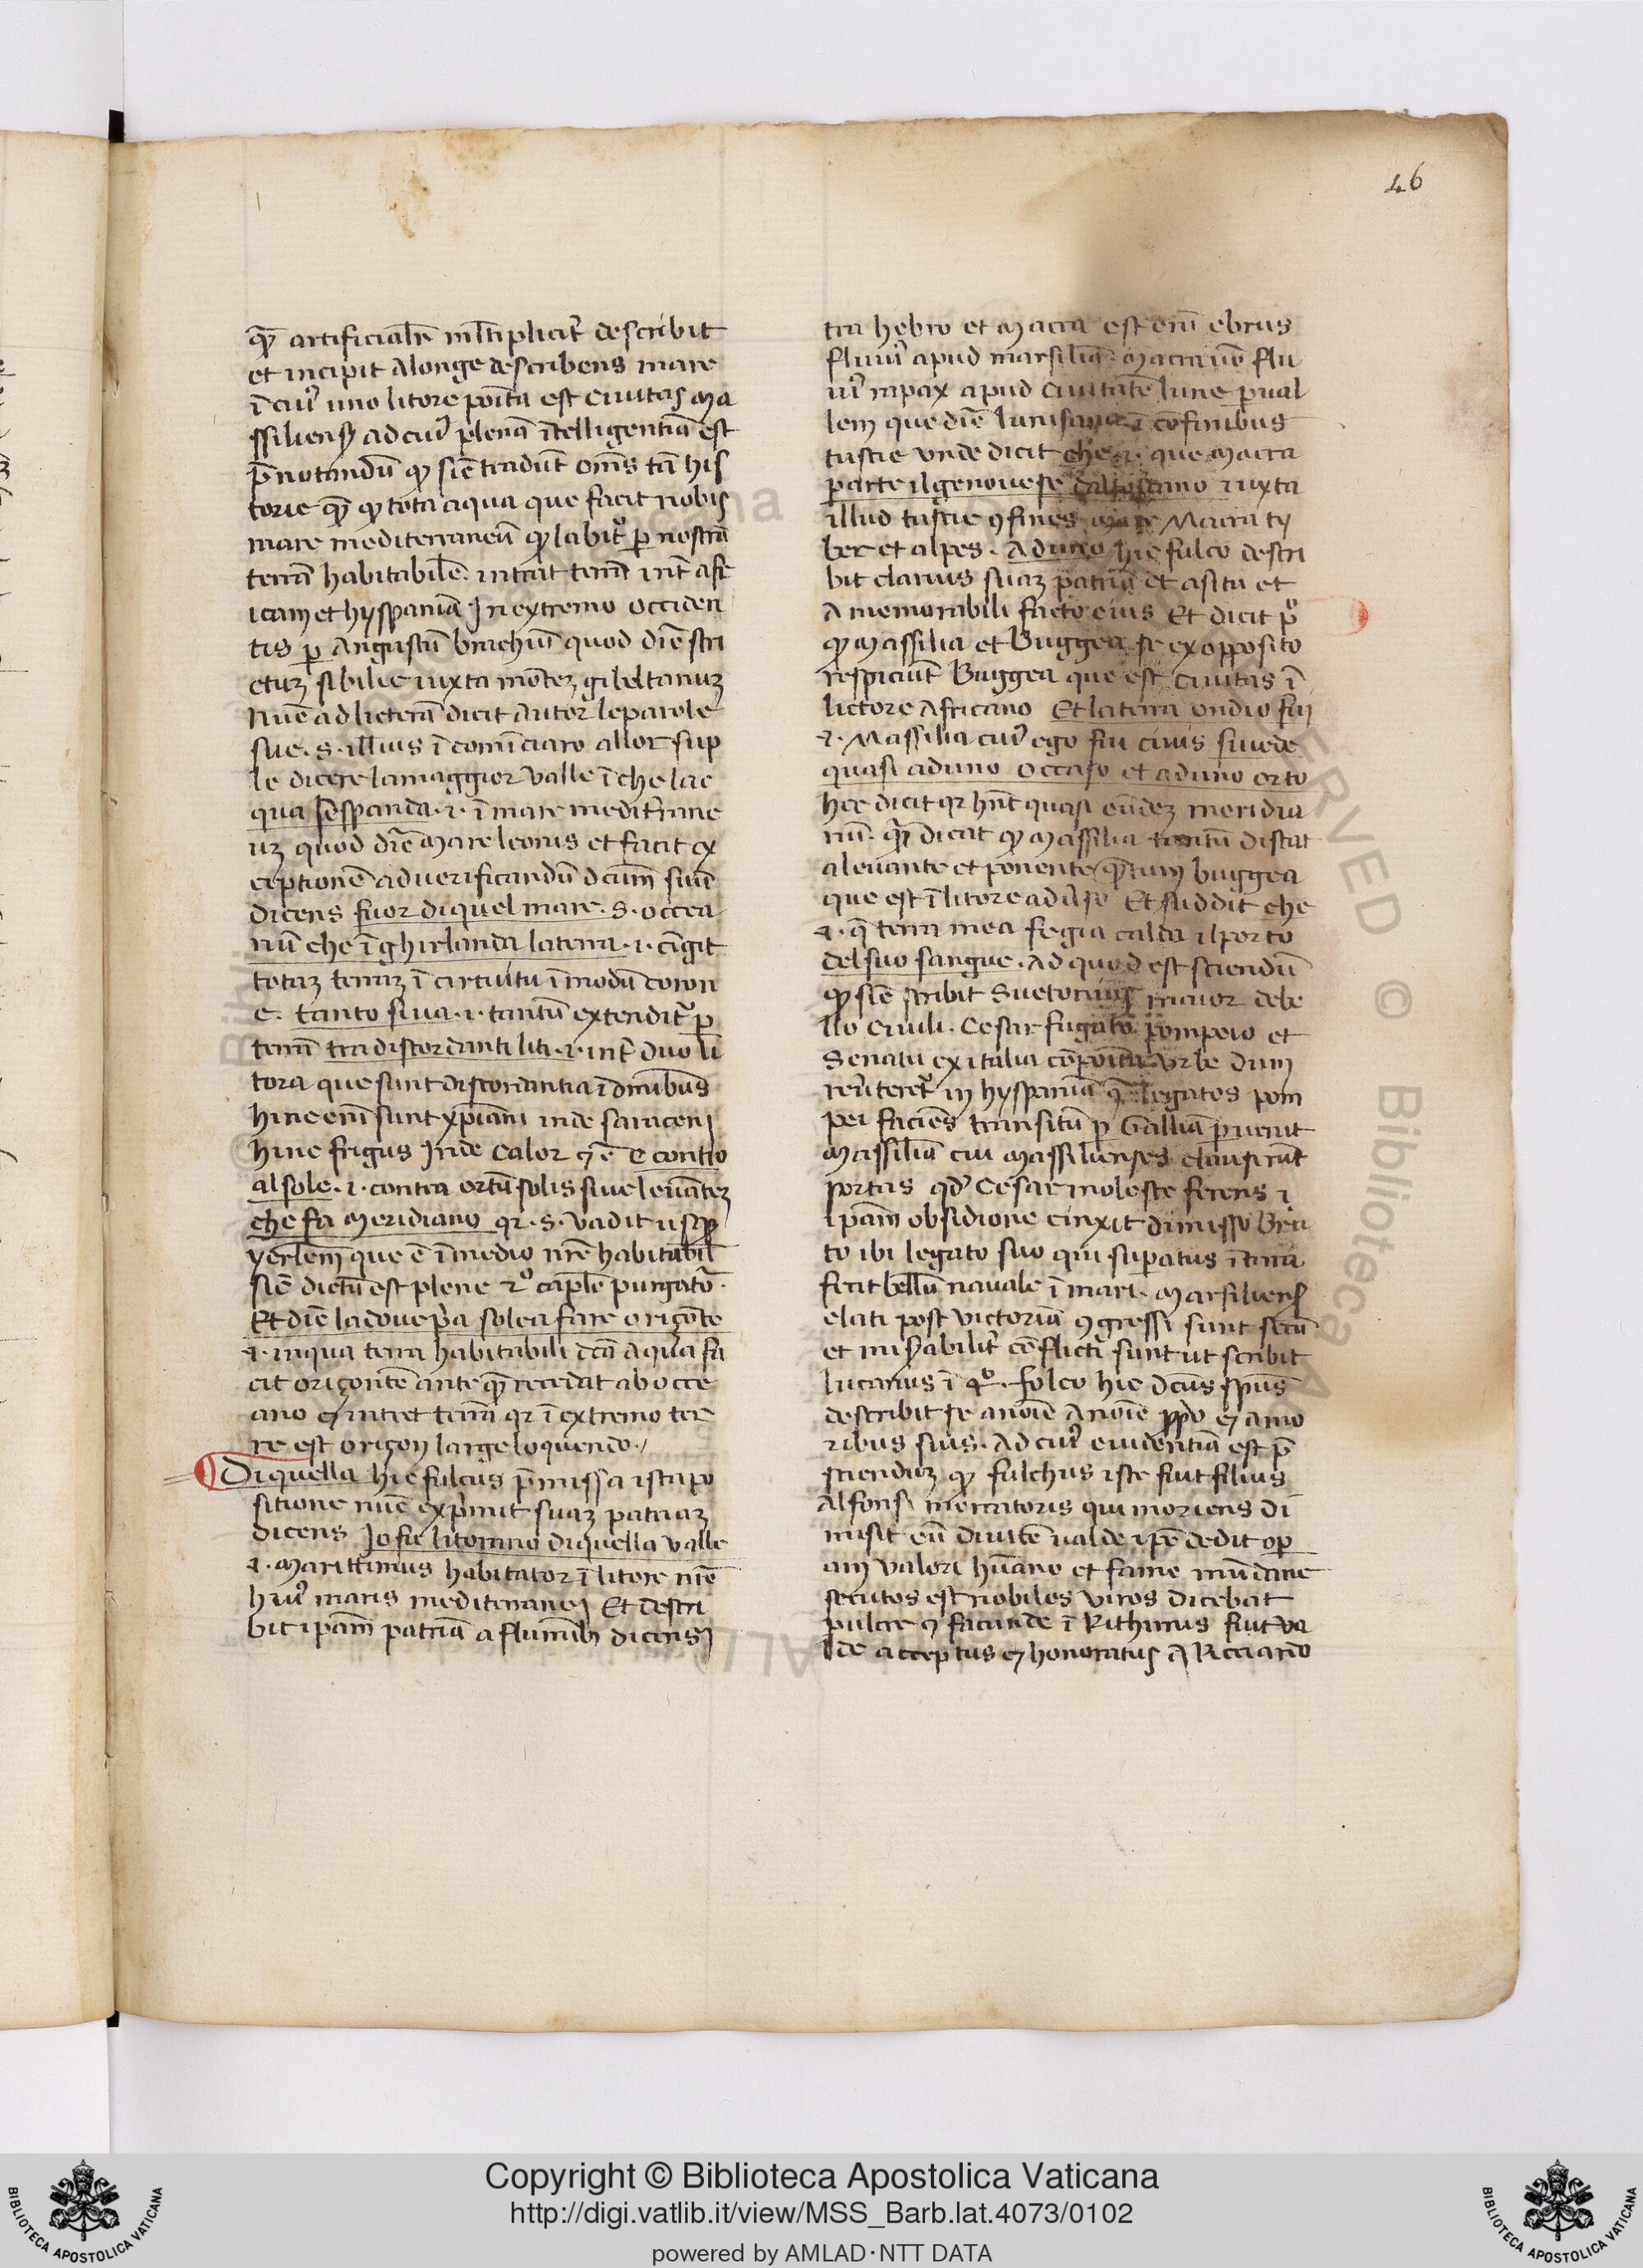 46
quā artificiał'r mĺtipliciť describit
et incipit Alonge describens mare
ī cui' uno litore po'ita est civitas Ma
ssiliens' ad cui' plenā ītelligentiā est
p̄ notandū qđ sic̄ tradūt om̄s tā his
torie quā qđ tota aqua que facit nobis
mare mediterraneū qđ labit' p nostrā
terrā habitabilē. intrat terrā int' afr
icam et hyspaniā In extremo occiden
tis p Angustū brachiū quod dic̄ stri
ctuz sibilie iuxta mōtez gibeltaruz
Nūc ad licterā dicit Autor le parole
sue .s. illius īcominciaro allor sup
le dicere la maggior valle ī che lac
qua si spanda .i. ī mare mediťrane
uz quod dr̄e Mare leonis et facit ex
ceptionē ad verificandū dictum suū
dicens fuor di quel mare .s. occea
nū che īghirlanda la terra .i. cīgit
totaz terraz ī circuitu ī modū coron
e. tanto sen va .i. tantū extendit' p
terrā tra discordanti liti .i. int' duo li
tora que sunt discordantia ī d omibus
hinc enī sunt xp̄iani inde saraceni
hinc frigus Inde calor qᷓ ē e contro
al sole .i. contra ortū solis sive levātez
che fa Meridiano qr .s. vadit usqȝ
yerłem que ē ī medio nr̄e habitabił
sic̄ dictū est plene 2° capło purgato'.
Et dic̄ la dove p'a solea fare oriçōte
.i. in qua terra habitabili dc̄a aqua fa
cit oriçontē ante quā recedat ab occe
ano et intret terrā qr ī extremo ter
re est oriçon large loquendo./
Di quella hic fulcus p̄missa ista po
sitione nūc exprimit suaz patriaz
dicens Io fu litorano di quella valle
.i. Marittimus habitator ī litore nr̄o
hui' maris mediterranei Et descri
bit ipam patriā a fluminib; dicens
tra hebro et Macra est enī ebrus
fluvi' apud marsiliā. Macra v̄o flu
vi' rapax apud civitatē lune p val
lem que dic̄ lunisana ī cōfinibus
tuscie unde dicit che .i. que Macra
parte il genovese dal toscano iuxta
illud tuscie 9fines mare Macra ty
ber et alpes. Ad unco hic fulco descri
bit clarius suaz patriā et a situ et
A memorabili facto eius Et dicit p°
qđ Massilia et Buggea se ex opposito
respiciūt Buggea que est civitas ī
lictore Africano Et la terra ondio fui
.i. Massilia cui' ego fui civis si vede
quasi ad uno occaso et ad uno orto
hec dicit qr hn̄t quasi eūdez meridia
nū. quasi dicat qđ Massilia tantū distat
a levante et ponente quātum buggea
que est ī litore adv'so Et suddit che
.i. qē terra mea fe gia calda il porto
del suo sangue. Ad quod est sciendū
qđ sic̄ scribit Suetonius maior de be
llo civili. Cesar fugato pompeio et
Senatu ex italia cōpoita urbe dum
rev'teret' in hyspaniā q̄ legatos pom
pei faciēs transitū p Galliā pvenit
Massiliā cui Massilienses clauserunt
portas qđ Cesar moleste ferens
ipam obsidione cinxit dimisso Bru
to ibi legato suo qui supatus ī terra
fecit bellū navale ī mari. Marsiliens'
elati post victoriā 9gressi sunt secū
et mis'abilit' cōflicti sunt ut scribit
lucanus ī 4°. folco hic dc̄us spūs
describit se a noīe A noīe pp'o et amo
ribus suis. Ad cui' evidentiā est p̄
sciendūz qđ fulchus iste fuit filius
Alfonsi mercatoris qui moriens di
misit eū divitē valde ipē dedit op
am valori hūano et fame mūdane
secutos est nobiles viros dicebat
pulcre 9 facunde ī Rithimis fuit va
lde acceptus et honoratus A Ricciardo
Copyright © Biblioteca Apostolica Vaticana
http://digi.vatlib.it/view/MSS_Barb.lat.4073/0102
powered by AMLAD·NTT DATA
BIBLIOTECA APOSTOLICA VATICANA
BIBLIOTECA APOSTOLICA VATICANA